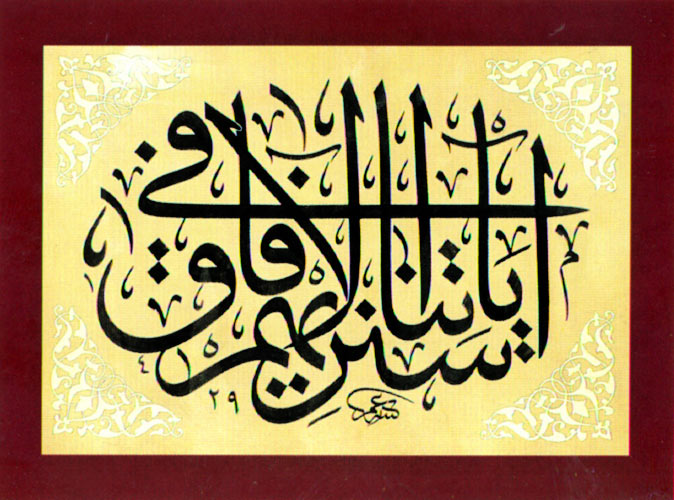 سنريهم
آياتنا في
الآفاق
٢٩